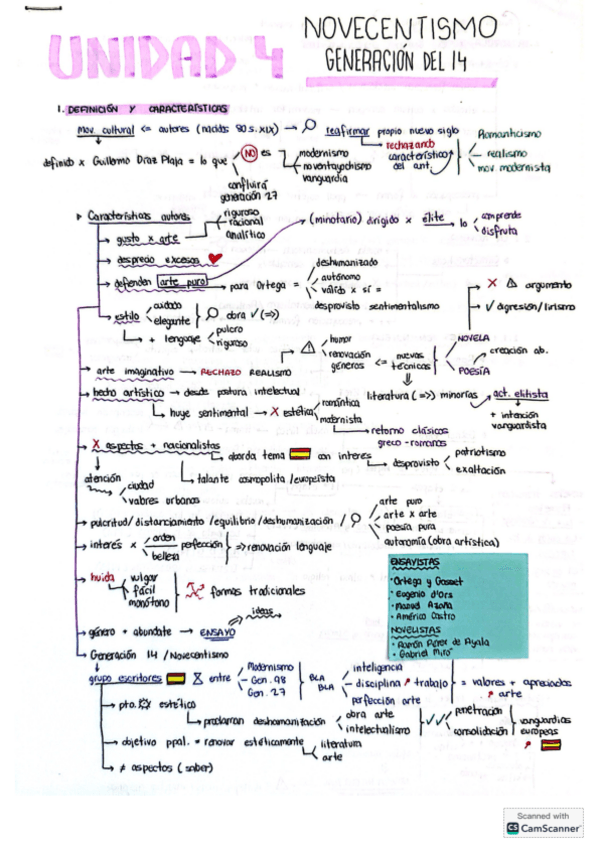 UNIDAD 4
NOVECENTISMO
GENERACIÓN DEL 14
1. DEFINICIÓN Y CARACTERÍSTICAS
Mov. cultural <= autores (nacidos 80 s. XIX) → reafirmar propio nuevo siglo
rechazando característico del ant.
Romanticismo
realismo
mov modernista
definido x Guillermo Díaz Plaja = lo que
NO es
modernismo
noventayochismo
vanguardia
confluirá generación 27
Características autores
riguroso
racional
analítico
gusto x arte
(minotario) dirigido x élite → lo
comprende
disfruta
desprecio excesos
defienden arte puro → para Ortega =
deshumanizado
autónomo
válido x sí =
desprovisto sentimentalismo
X argumento
✓ digresión/lirismo
estilo
cuidado
elegante
obra ✓ (=>)
+ lenguaje
pulcro
riguroso
arte imaginativo → RECHAZO REALISMO
humor
renovación géneros <= nuevas técnicas
NOVELA
POESÍA
creación ab.
hecho artístico → desde postura intelectual
literatura (=>) minorías → act. elitista
+ intención vanguardista
huye sentimental → X estética
romántica
modernista
retorno clásicos greco-romanos
X aspectos + nacionalistas
aborda tema con interés
desprovisto
patriotismo
exaltación
talante cosmopolita/europeísta
atención
ciudad
valores urbanos
pulcritud/distanciamiento/equilibrio/deshumanización/
arte puro
arte x arte
poesía pura
autonomía (obra artística)
interés x
orden
belleza
perfección => renovación lenguaje
huida
vulgar
fácil
monótono
formas tradicionales
ideas
género + abundate → ENSAYO
ENSAYISTAS
· Ortega y Gasset
· Eugenio d'Ors
· Manuel Azaña
· Américo Castro
NOVELISTAS
· Ramón Pérez de Ayala
· Gabriel Miró
Generación 14 / Novecentismo
grupo escritores
entre
Modernismo
Gen. 98
Gen. 27
BLA BLA
inteligencia
disciplina trabajo
perfección arte
= valores + apreciados
arte
pto. estético
proclaman deshumanización
obra arte
intelectualismo
✓✓
penetración
consolidación
vanguardias europeas
objetivo ppal. = renovar estéticamente
literatura
arte
≠ aspectos (saber)
Scanned with
CS CamScanner